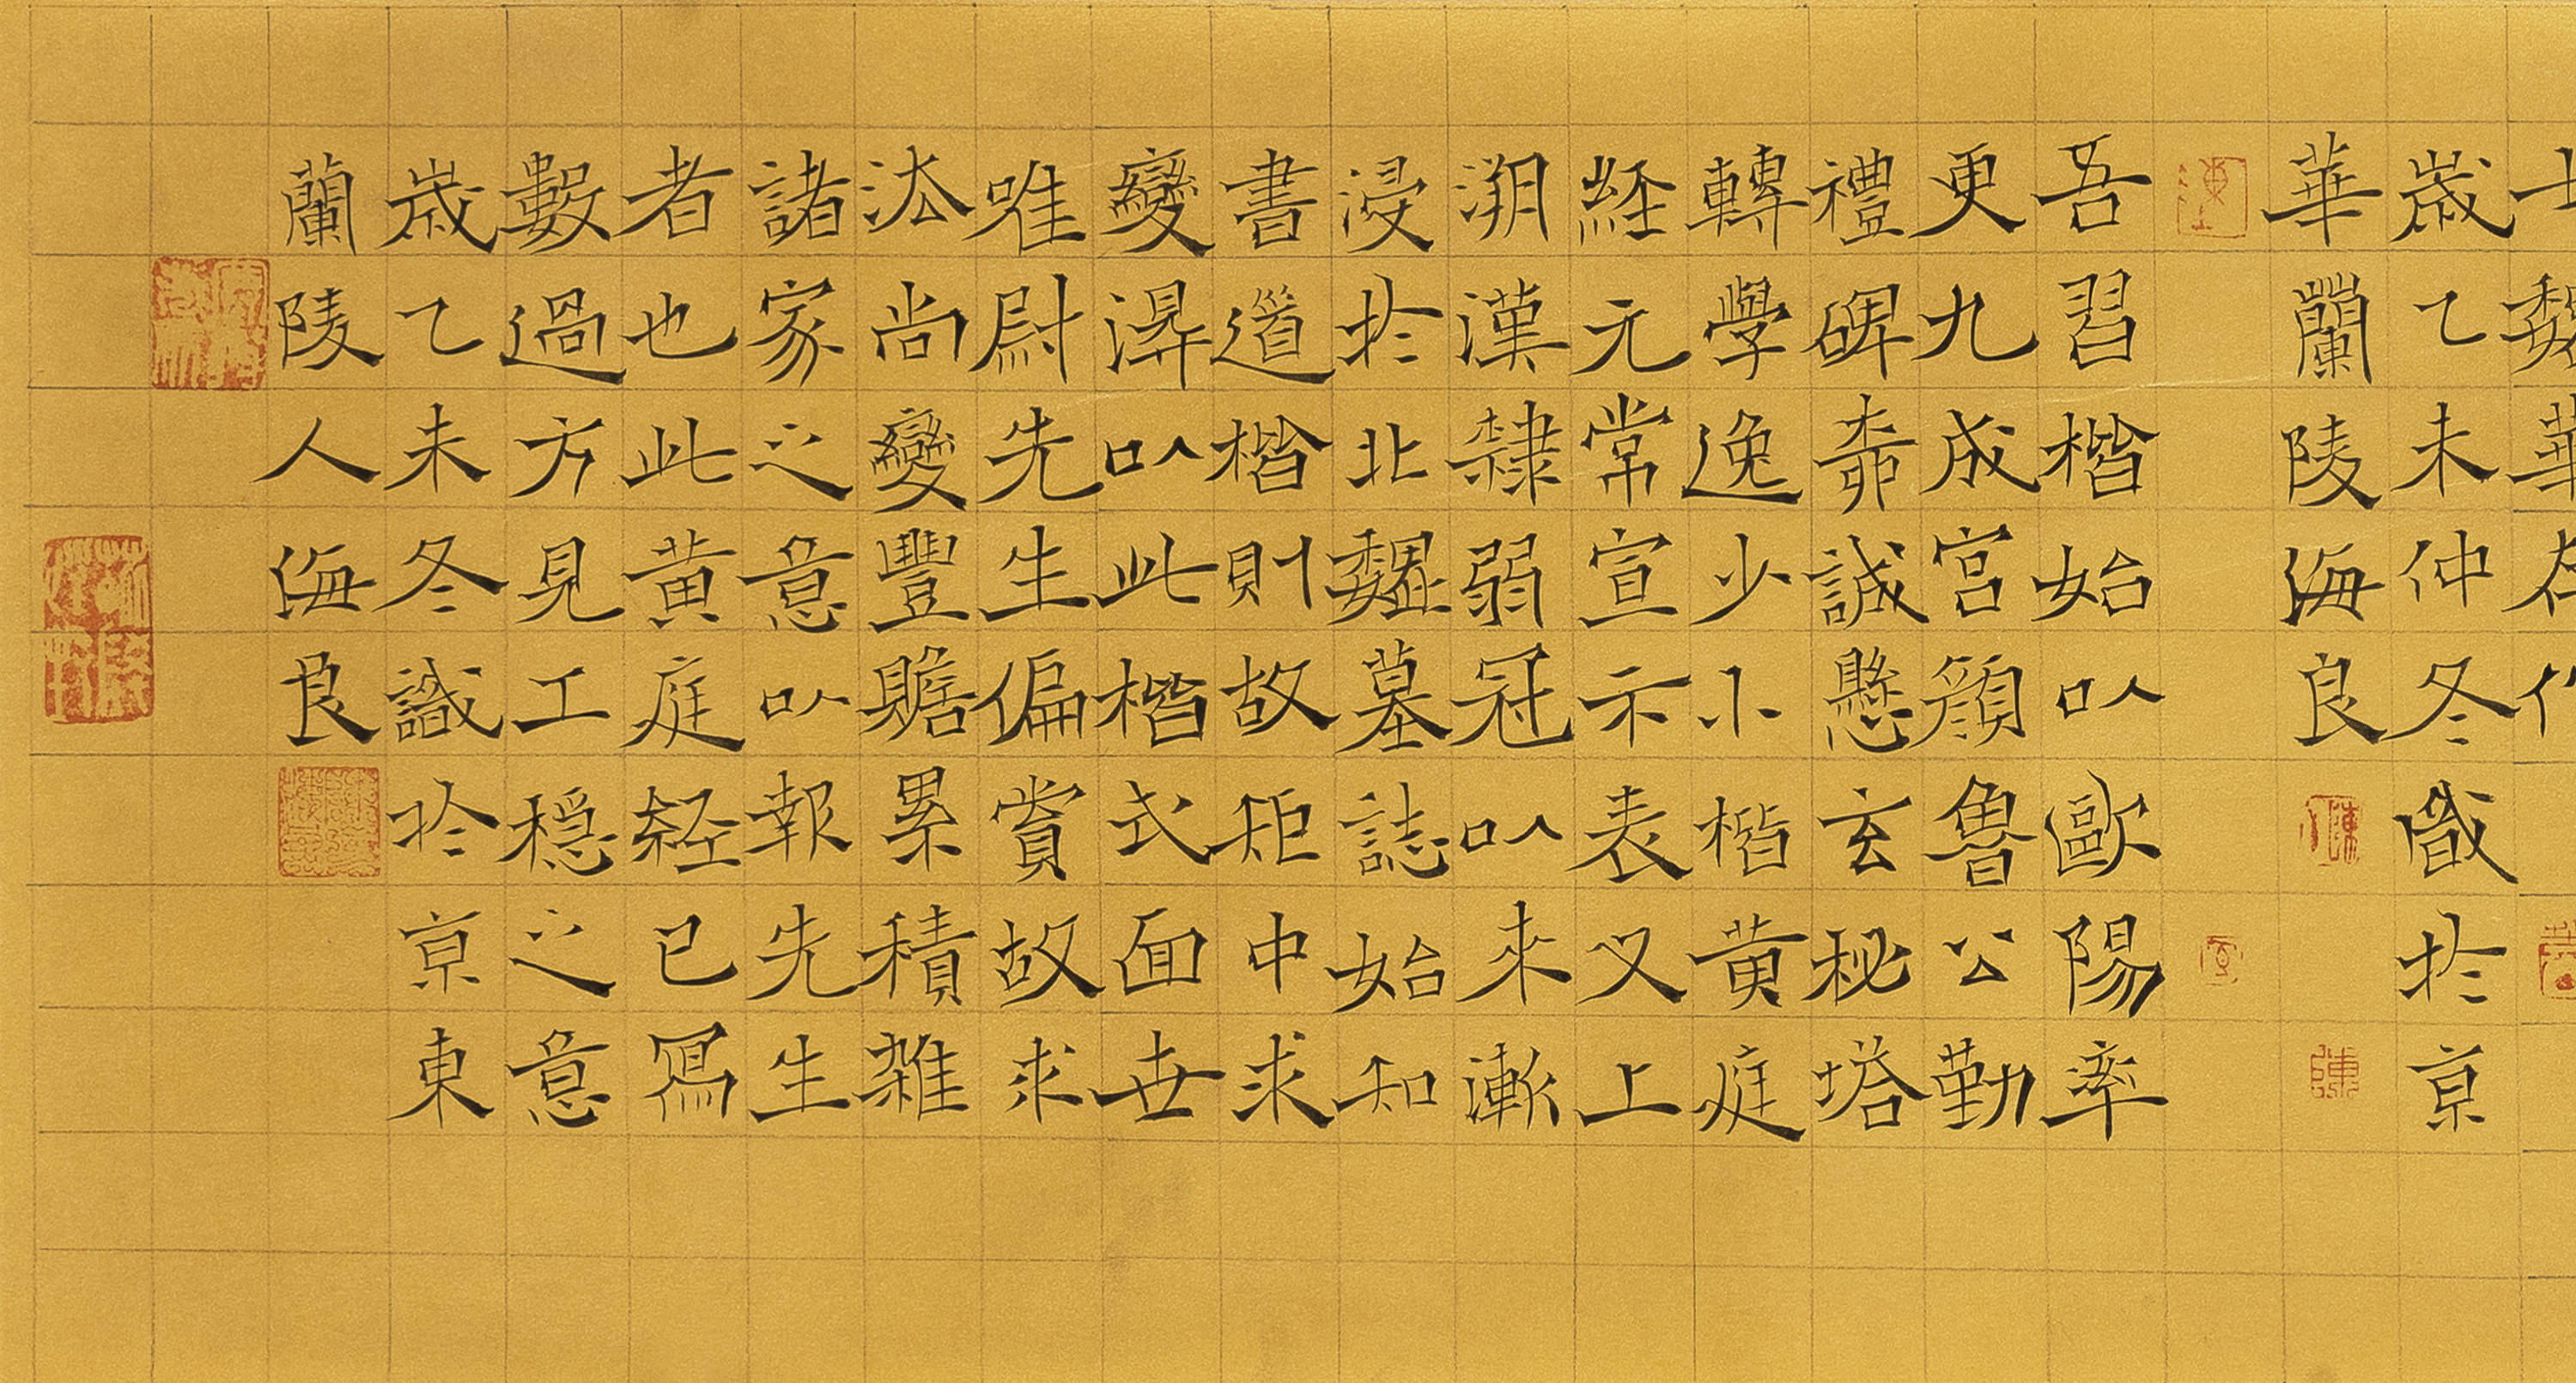 士魏華在作
歲乙未仲冬識於京
華蘭陵海良
吾習楷始以歐陽率
更九成宮顏魯公勤
禮碑柳誠懸玄秘塔
轉學逸少小楷黃庭
經元常宣示表又上
溯漢隸弱冠以來漸
浸於北魏墓誌始知
書道楷則故矩中求
變淂以此楷式面世
唯尉先生偏賞故求
法尚變豐贍累積雜
諸家之意以報先生
者也此黃庭經已寫
數過方見工穩之意
歲乙未冬識於京東
蘭陵人海良